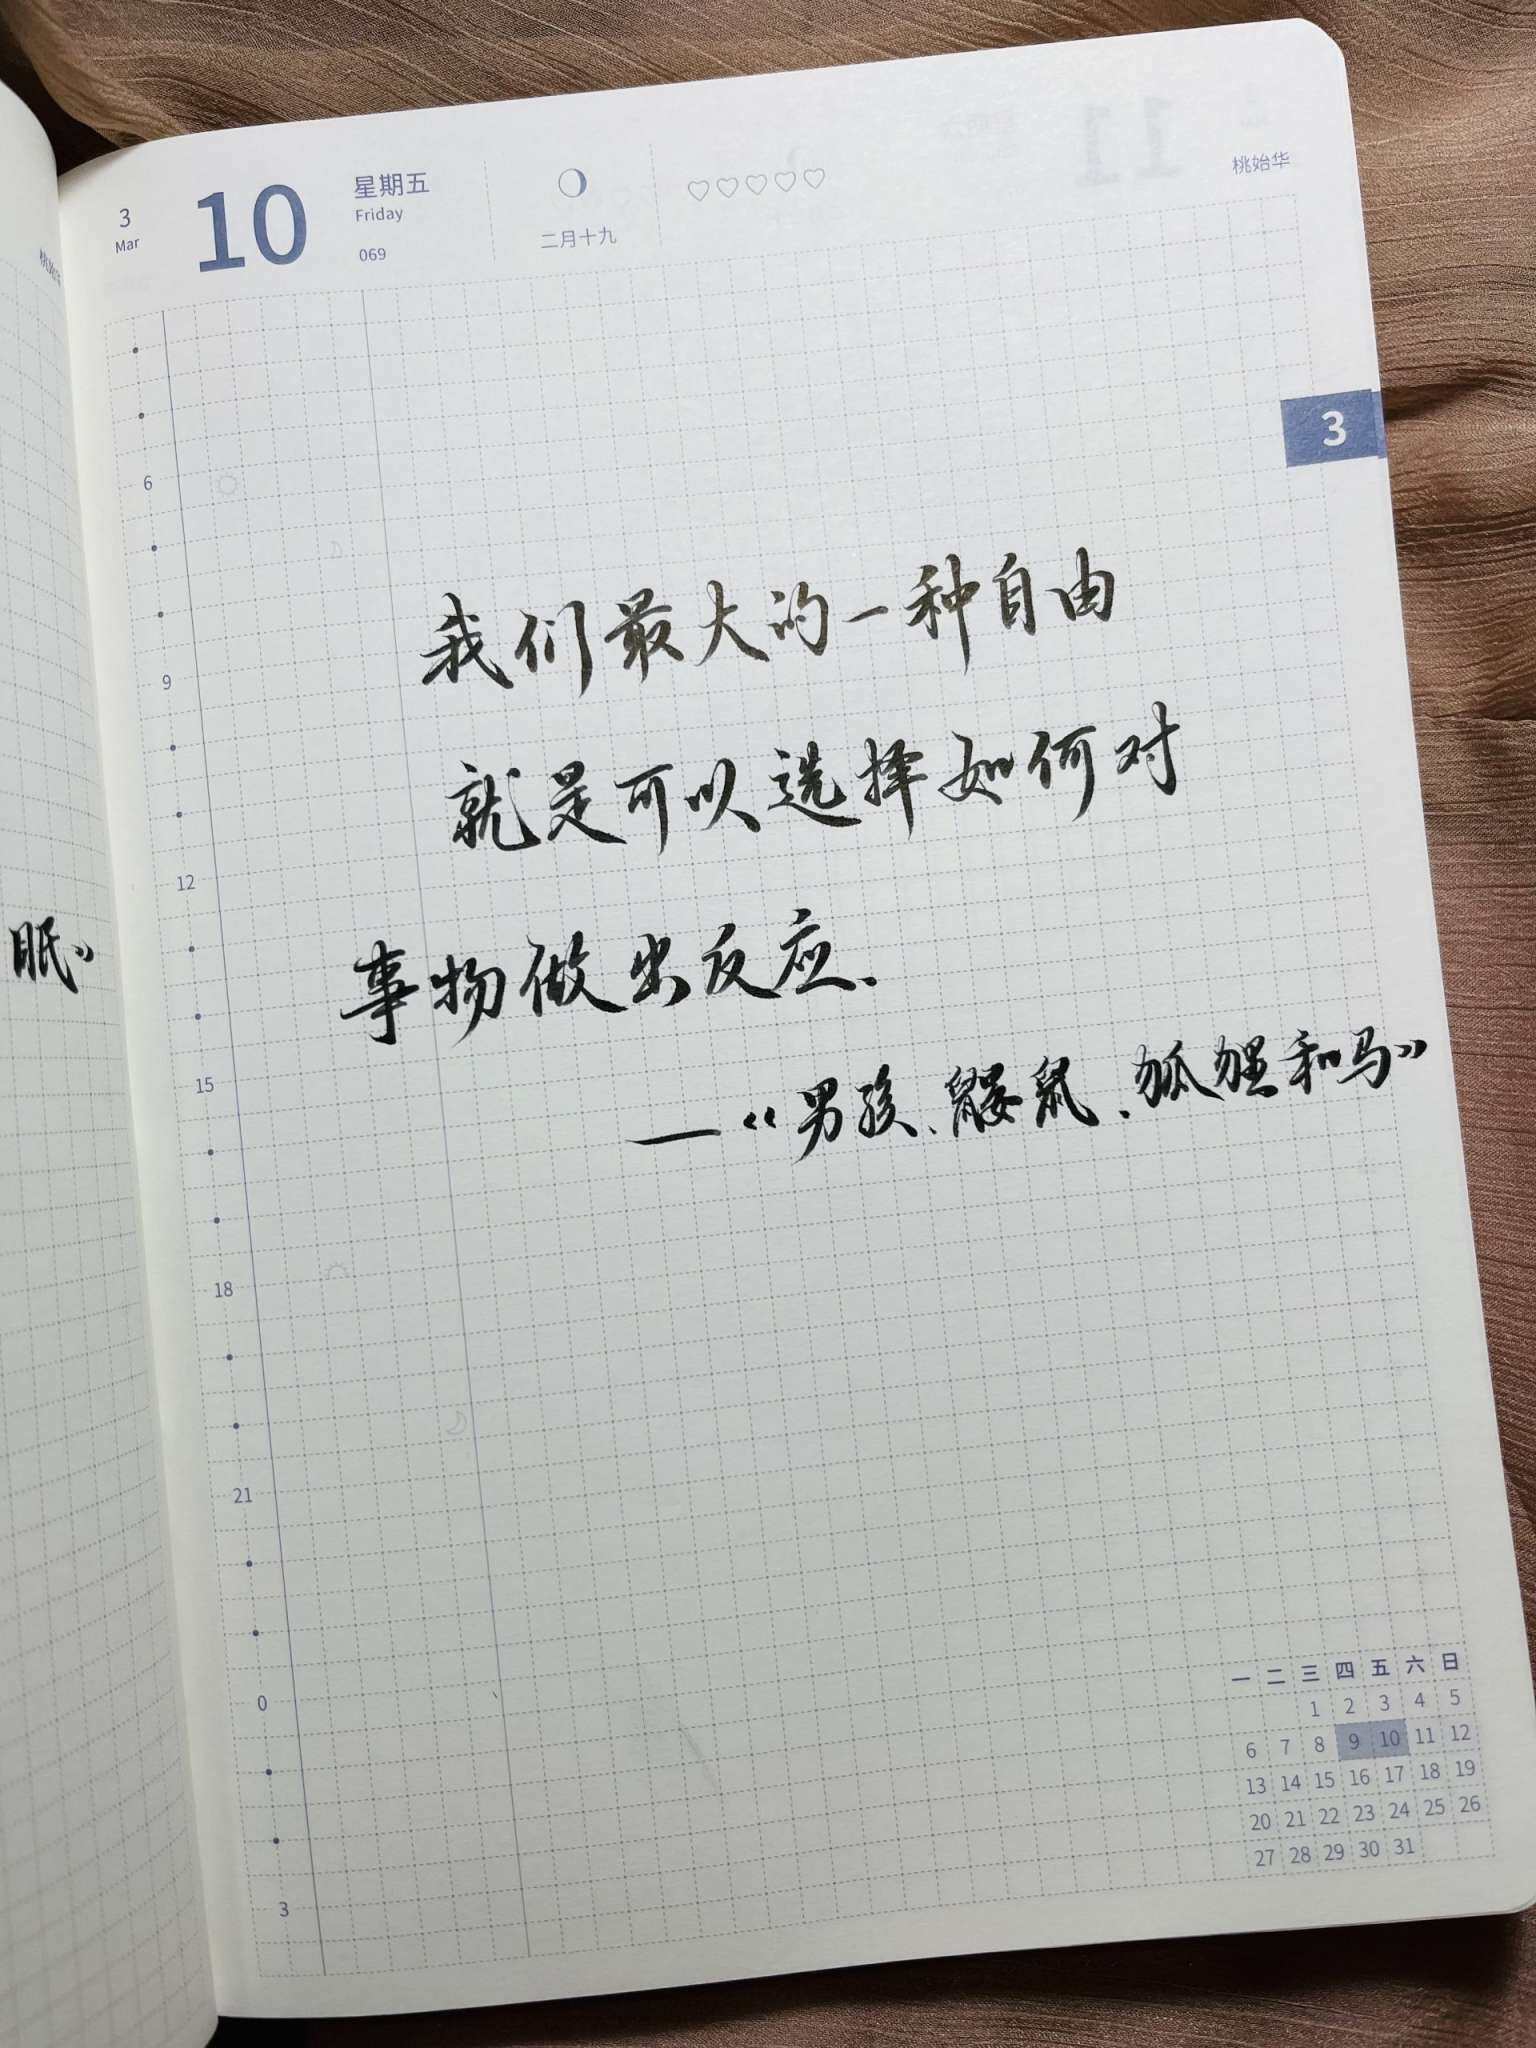 3
Mar
10
星期五
Friday
069
二月十九
桃始华
3
6
9
12
15
18
21
0
3
我们最大的一种自由
就是可以选择如何对
事物做出反应.
—《男孩、鼹鼠、狐狸和马》
眠》
一 二 三 四 五 六 日
1 2 3 4 5
6 7 8 9 10 11 12
13 14 15 16 17 18 19
20 21 22 23 24 25 26
27 28 29 30 31